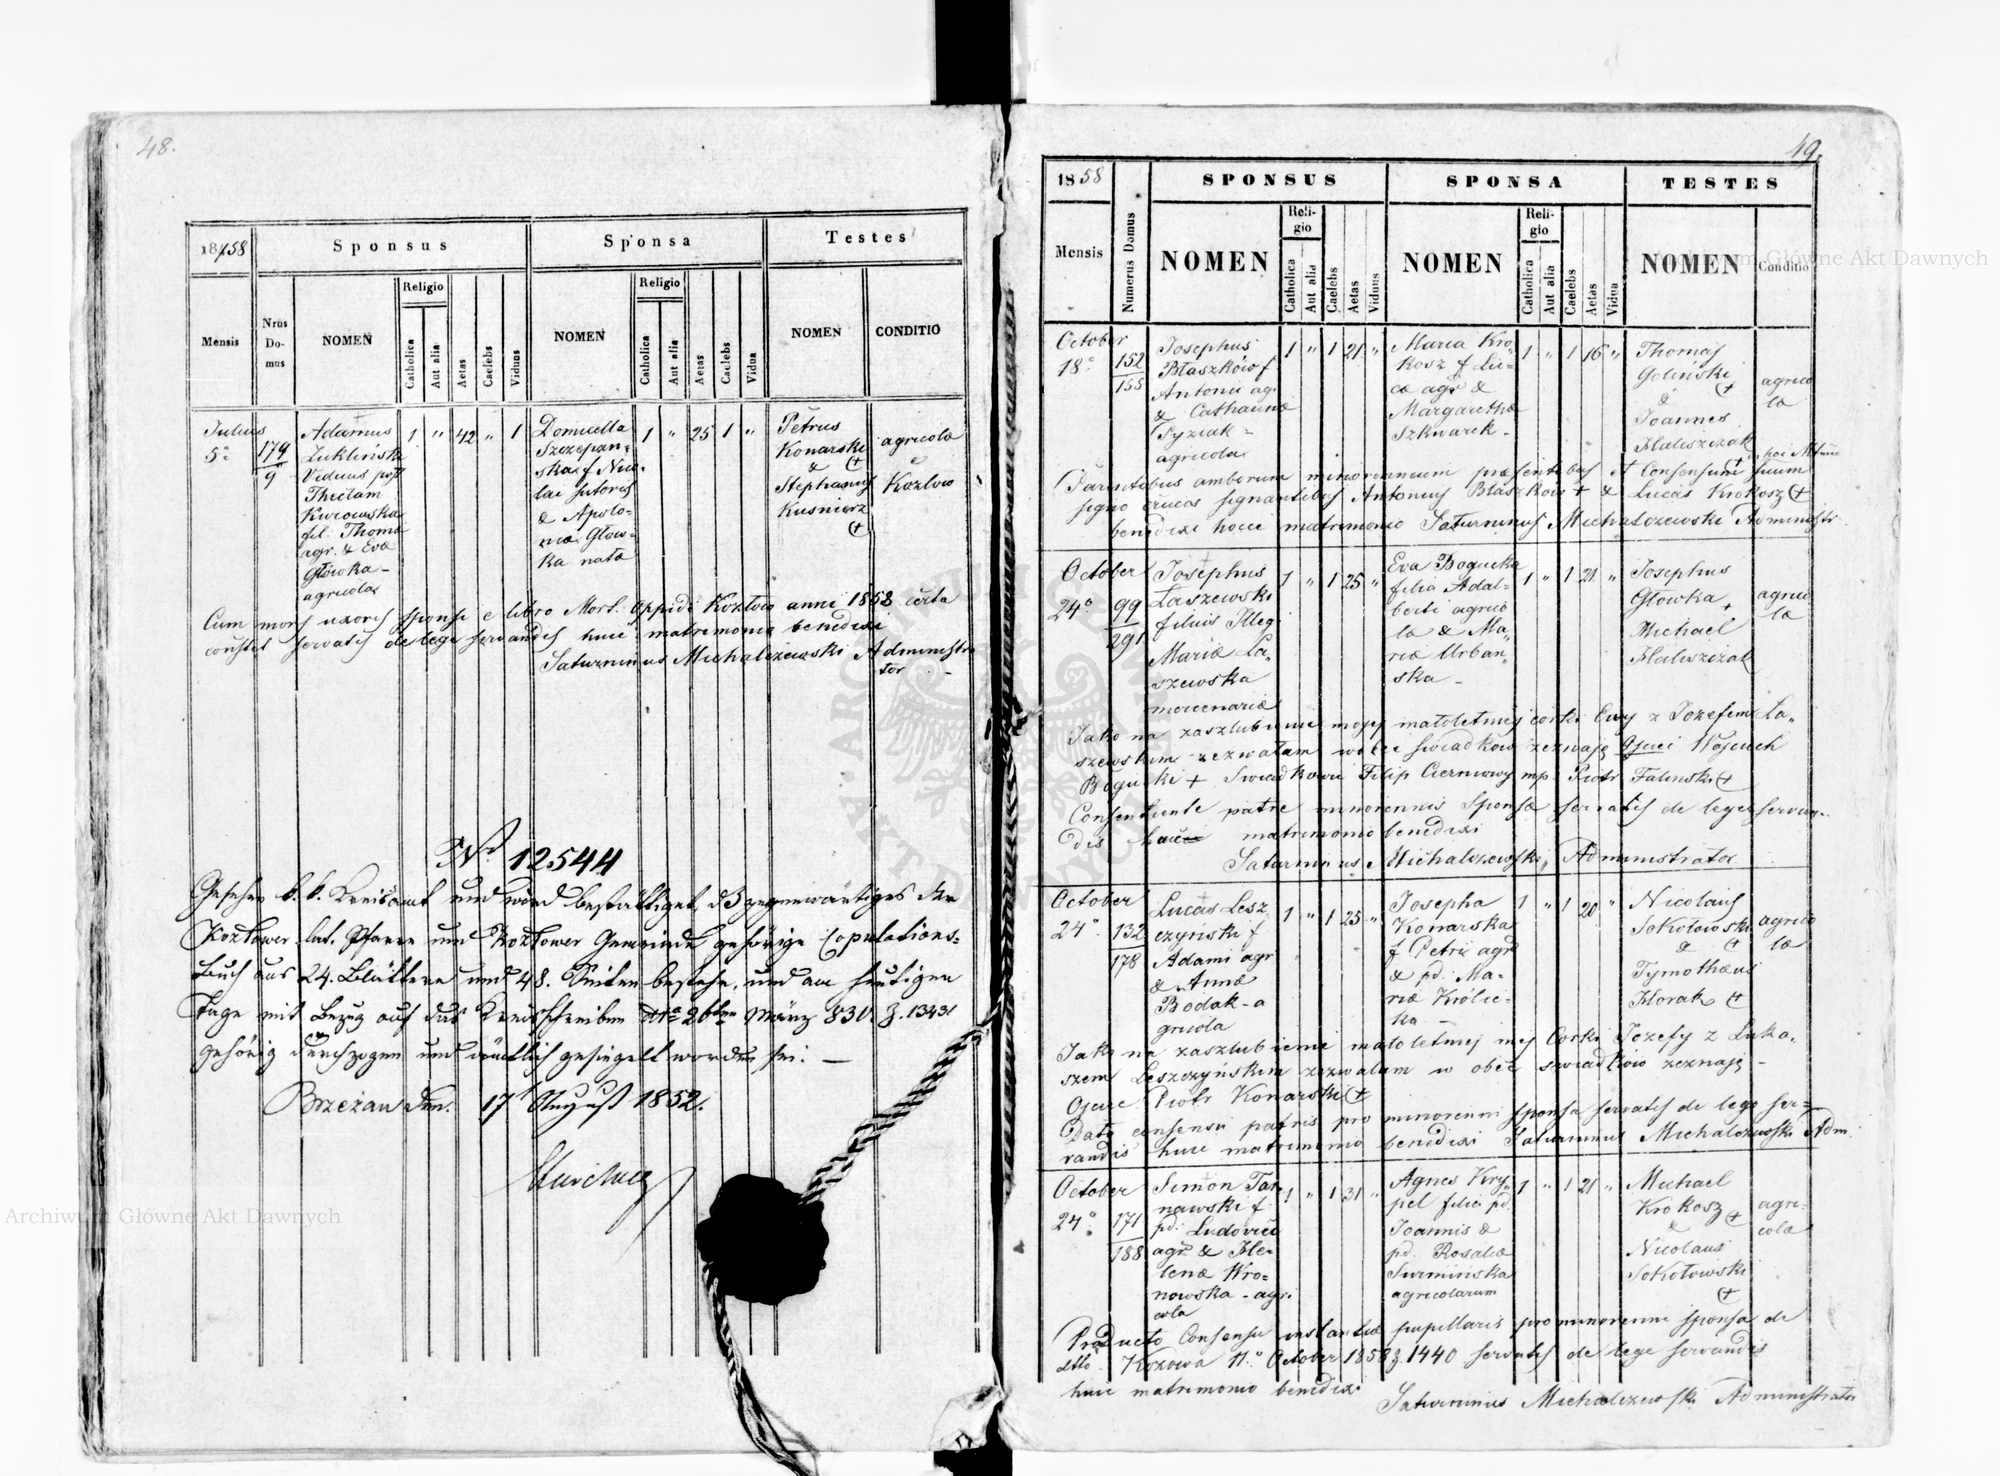 48.
1858
Sponsus
Sponsa
Testes
Mensis
Nrus Do- mus
NOMEN
Religio
Catholica
Aut alia
Aetas
Caelebs
Viduus
NOMEN
Religio
Catholica
Aut alia
Aetas
Caelebs
Vidua
NOMEN
CONDITIO
Julius
5a
179
9
Adamus
Zukliński
Viduus post
Theclam
Kurowska
fil. Thomæ
agr. & Evæ
Głowka -
agricolæ
1 " 42 " 1
Domicella
Szczepan-
ska f Nico-
lai sutoris
& Apolo-
niæ Głow-
ka nata
1 " 25 1 "
Petrus
Konarski
& +
Stephanus
Kusnierz
+
agricolæ
Kozłow
Cum mors uxoris sponsi e libro Mort. Oppidi Kozłow anni 1858 certa
constet servatis de lege servandis huic matrimonio benedixi
Saturninus Michalczewski Administra
tor -
No 12544
Gesehen k. k. Kreisamt und wird bestättiget, dß gegenwärtiges der
Kozlower lat. Pfarre und Kozlower Gemeinde gehörige Copulations-
Buch aus 24. Blättern und 48. Seiten bestehe, und am heutigen
Tage mit Bezug auf das Kreisschreiben 26ten März 830. Z. 13431
gehörig durchzogen und ämtlich gesiegelt worden sei. —
Brzeżan den 17 August 1852.
49.
1858
SPONSUS
SPONSA
TESTES
Mensis
Numerus Domus
NOMEN
Reli-
gio
Catholica
Aut alia
Caelebs
Aetas
Viduus
NOMEN
Reli-
gio
Catholica
Aut alia
Caelebs
Aetas
Vidua
NOMEN
Conditio
October
18a
152
155
Josephus
Błaszków f
Antonii agr
& Catharinæ
Pyziak -
agricola
1 " 1 21 "
Maria Kro
kosz f Lu-
cæ agr &
Margarethæ
Szkwarek -
1 " 1 16 "
Thomas
Goliński
+
&
Joannes
Haliszczak
+
agrico
læ
Parentibus amborum minorennium præsentibus et Consensum suum
signo crucis signantibus Antonius Błaszków + & Lucas Krokosz +
benedixi hocce matrimonio Saturninus Michalczewski Administr
October
24a
99
291
Josephus
Laszewski
filius Illeg
Mariæ La-
szewska
mercenariæ
1 " 1 25 "
Eva Bogucka
filia Adal-
berti agrico
læ & Ma-
riæ Urban-
ska -
1 " 1 21 "
Josephus
Głowka +
Michael
Haliszczak
agrico
læ
Jako na zaszlubienie mojej małoletniej corki Ewy z Jozefem La-
szewskim zezwalam wobec swiadkow zeznaję Ojciec Wojciech
Bogucki + Swiadkowie Filip Cierniowy mp. Piotr Falinski +
Consentiente patre minorennis Sponsæ servatis de lege servan-
dis matrimonio benedixi
Saturninus Michalczewski, Administrator
October
24a
132
178
Lucas Lesz
czyński f
Adami agr
& Annæ
Bodak - a
gricola
1 " 1 25 "
Josepha
Konarska
f Petri agr
& pd: Ma-
riæ Królic-
ka -
1 " 1 20 "
Nicolaus
Sokołowski
& +
Tymotheus
Horak +
agrico
læ
Jako na zaszlubienie małoletniej mej Corki Jozefy z Luka-
szem Leszczyńskim zezwalam w obec swiadków zeznaję -
Ojciec Piotr Konarski +
Dato consensu patris pro minorenni sponsa servatis de lege ser-
vandis huic matrimonio benedixi Saturninus Michalczewski Adm.
October
24a
171
188
Simon Tar
nawski f.
pd: Ludovici
agr. & He-
lenæ Wro-
nowska - agr.
cola
1 " 1 31 "
Agnes Kry
pel filia pd.
Joannis &
pd. Rosaliæ
Surmińska
agricolarum
1 " 1 21 "
Michael
Krokosz +
&
Nicolaus
Sokołowski
+
agri-
colæ
Producto Consensu instantiæ pupillaris pro minorenni sponsa de
dtto. Kozowa 11a October 1858 Z. 1440 servatis de lege servandis
huic matrimonio benedixi
Saturninus Michalczewski Administrator
Archiwum Główne Akt Dawnych
Archiwum Główne Akt Dawnych